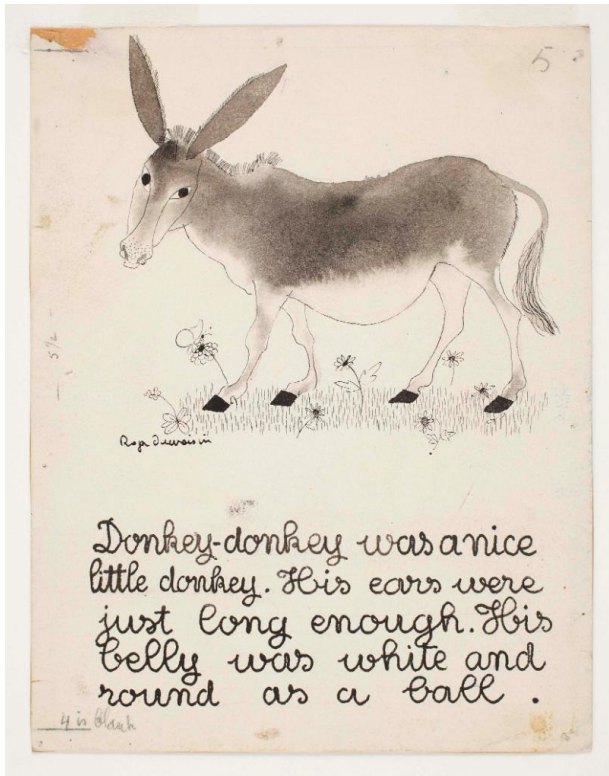 5
5 1/2
Roger Duvoisin
Donkey-donkey was a nice
little donkey. His ears were
just long enough. His
belly was white and
round as a ball .
4 is blank